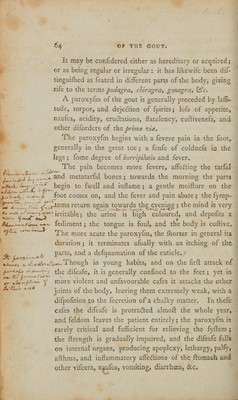 64 OF THE GOUT.
It may be considered either as hereditary or acquired;
or as being regular or irregular: it has likewise been dis-
tinguished as seated in different parts of the body, giving
rise to the terms podagra, chiragra, gonagra, &c.
A paroxysm of the gout is generally preceded by lassi-
tude, torpor, and dejection of spirits; loss of appetite,
nausea, acidity, eructations, flatulency, costiveness, and
other disorders of the primæ viæ.
The paroxysm begins with a severe pain in the foot,
generally in the great toe; a sense of coldness in the
legs; some degree of horripilatio and fever.
The pain becomes more severe, affecting the tarsal
and metatarsal bones; towards the morning the parts
begin to swell and inflame; a gentle moisture on the
foot comes on, and the fever and pain abate; the symp-
toms return again towards the evening; the mind is very
irritable; the urine is high coloured, and deposits a
sediment; the tongue is foul, and the body is costive.
The more acute the paroxysm, the shorter in general its
duration; it terminates usually with an itching of the
parts, and a desquamation of the cuticle.
Though in young habits, and on the first attack of
the disease, it is generally confined to the feet; yet in
more violent and unfavourable cases it attacks the other
joints of the body, leaving them extremely weak, with a
disposition to the secretion of a chalky matter. In these
cases the disease is protracted almost the whole year,
and seldom leaves the patient entirely; the paroxysm is
rarely critical and sufficient for relieving the system;
the strength is gradually impaired, and the disease falls
on internal organs, producing apoplexy, lethargy, palsy,
asthma, and inflammatory affections of the stomach and
other viscera, nausea, vomiting, diarrhœa, &c.